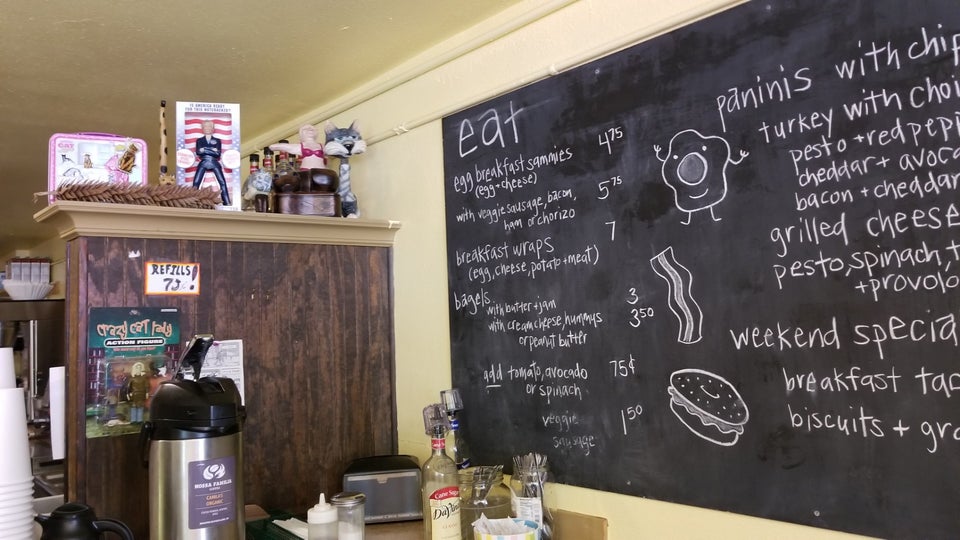 IS AMERICA READY
FOR THIS NUTCRACKER?
CAT
REFILLS!
75¢
crazy cat lady
ACTION FIGURE
NOSSA FAMILIA
CAMILA'S
ORGANIC
Cane Sugar
DaVinci
eat
egg breakfast sammies 4.75
(egg + cheese)
with veggie sausage, bacon, 5.75
ham or chorizo
breakfast wraps 7
(egg, cheese, potato + meat)
bagels
with butter + jam 3
with cream cheese, hummus 3.50
or peanut butter
add tomato, avocado 75¢
or spinach
veggie 1.50
sausage
paninis with chip
turkey with choi
pesto + red pepp
cheddar + avoca
bacon + cheddar
grilled cheese
pesto, spinach, t
+ provolo
weekend specia
breakfast tac
biscuits + gra